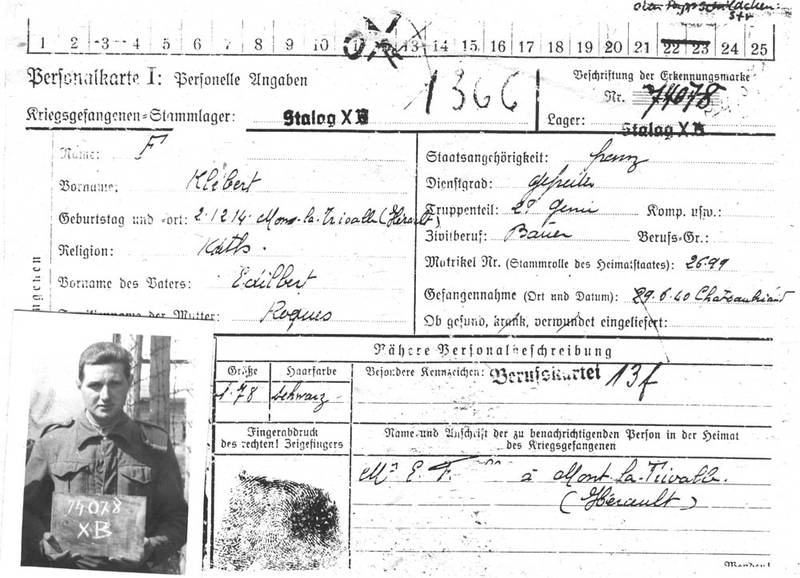 1 2 3 4 5 6 7 8 9 10 13 14 15 16 17 18 19 20 21 22 23 24 25
Personalkarte I: Personelle Angaben
1366
Beschriftung der Erkennungsmarke
Nr. 74078
Kriegsgefangenen=Stammlager: Stalag X B
Lager: Stalag X B
Name: F
Vorname: Klébert
Geburtstag und =ort: 2.12.14. Mons-la-Trivalle (Hérault)
Religion: Kath.
Vorname des Vaters: Edilbert
Familienname der Mutter: Roques
Staatsangehörigkeit: franz
Dienstgrad: Gefreiter
Truppenteil: 2e Genie Komp. usw.:
Zivilberuf: Bauer Berufs=Gr.:
Matrikel Nr. (Stammrolle des Heimatstaates): 2699
Gefangennahme (Ort und Datum): 29.6.40 Chateaubriand
Ob gesund, krank, verwundet eingeliefert:
Nähere Personalbeschreibung
Größe Haarfarbe
1.78 schwarz
Besondere Kennzeichen: Berufskartei 13f
Fingerabdruck
des rechten! Zeigefingers
Name und Anschrift der zu benachrichtigenden Person in der Heimat
des Kriegsgefangenen
Mr E. F à Mont-la-Trivalle
(Hérault)
Wenden!
74078
XB